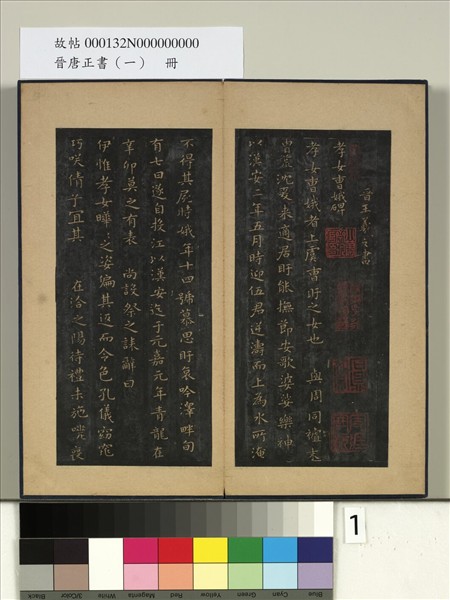 故帖 000132N000000000
晉唐正書（一） 冊
晉王羲之書
孝女曹娥碑
孝女曹娥者上虞曹盱之女也 其先與周同祖末
胄荒沈爰來適居盱能撫節安歌婆娑樂神
以漢安二年五月時迎伍君逆濤而上為水所淹
不得其屍時娥年十四號慕思盱哀吟澤畔旬
有七日遂自投江以漢安迄于元嘉元年青龍在
辛卯莫之有表 尚設祭之誄辭曰
伊惟孝女曄之姿偏其返而令色孔儀窈窕
巧咲倩子宜其 在洽之陽待禮未施嗟喪
1
Black
3/Color
White
Magenta
Red
Yellow
Green
Cyan
Blue